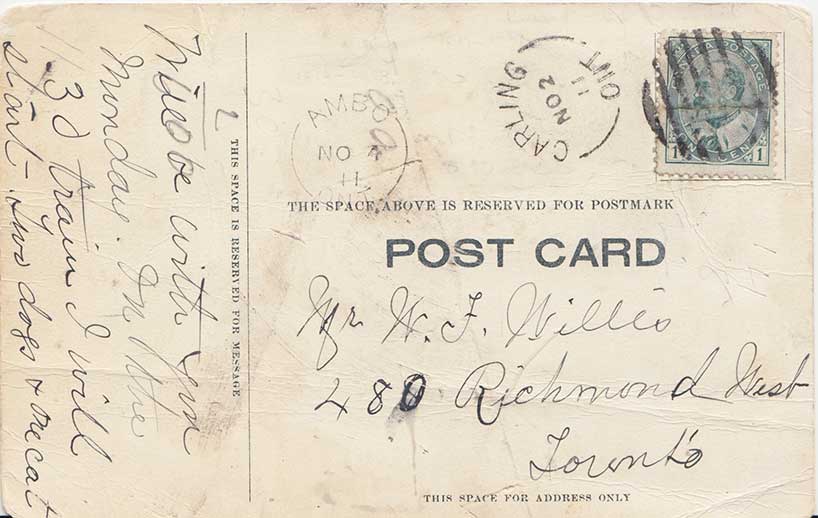 CARLING
NO 2
11
ONT
AMBO
NO
11
POSTAGE
1 CENT 1
THE SPACE ABOVE IS RESERVED FOR POSTMARK
POST CARD
Mr W. F. Willis
480 Richmond West
Toronto
THIS SPACE FOR ADDRESS ONLY
THIS SPACE IS RESERVED FOR MESSAGE
2
be with you
Monday. On the
11 30 train I will
start. two dogs & one cat